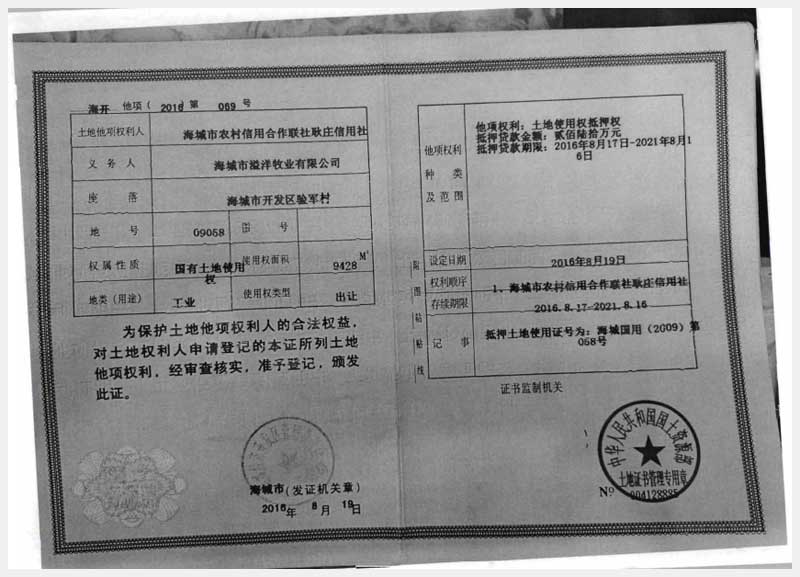 海开 他项（2016）第 069 号
土地他项权利人 海城市农村信用合作联社耿庄信用社
义务人 海城市溢洋牧业有限公司
座落 海城市开发区验军村
地号 09058 图号
权属性质 国有土地使用权 使用权面积 9428 M²
地类（用途） 工业 使用权类型 出让
为保护土地他项权利人的合法权益，
对土地权利人申请登记的本证所列土地
他项权利，经审查核实，准予登记，颁发
此证。
海城市（发证机关章）
2016年 8月 19日
他项权利种类及范围
他项权利：土地使用权抵押权
抵押贷款金额：贰佰陆拾万元
抵押贷款期限：2016年8月17日-2021年8月1
6日
设定日期 2016年8月19日
权利顺序 1、海城市农村信用合作联社耿庄信用社
存续期限 2016.8.17-2021.8.16
记事 抵押土地使用证号为：海城国用（2009）第
058号
附图粘贴线
证书监制机关
中华人民共和国国土资源部
土地证书管理专用章
Nº 004128885